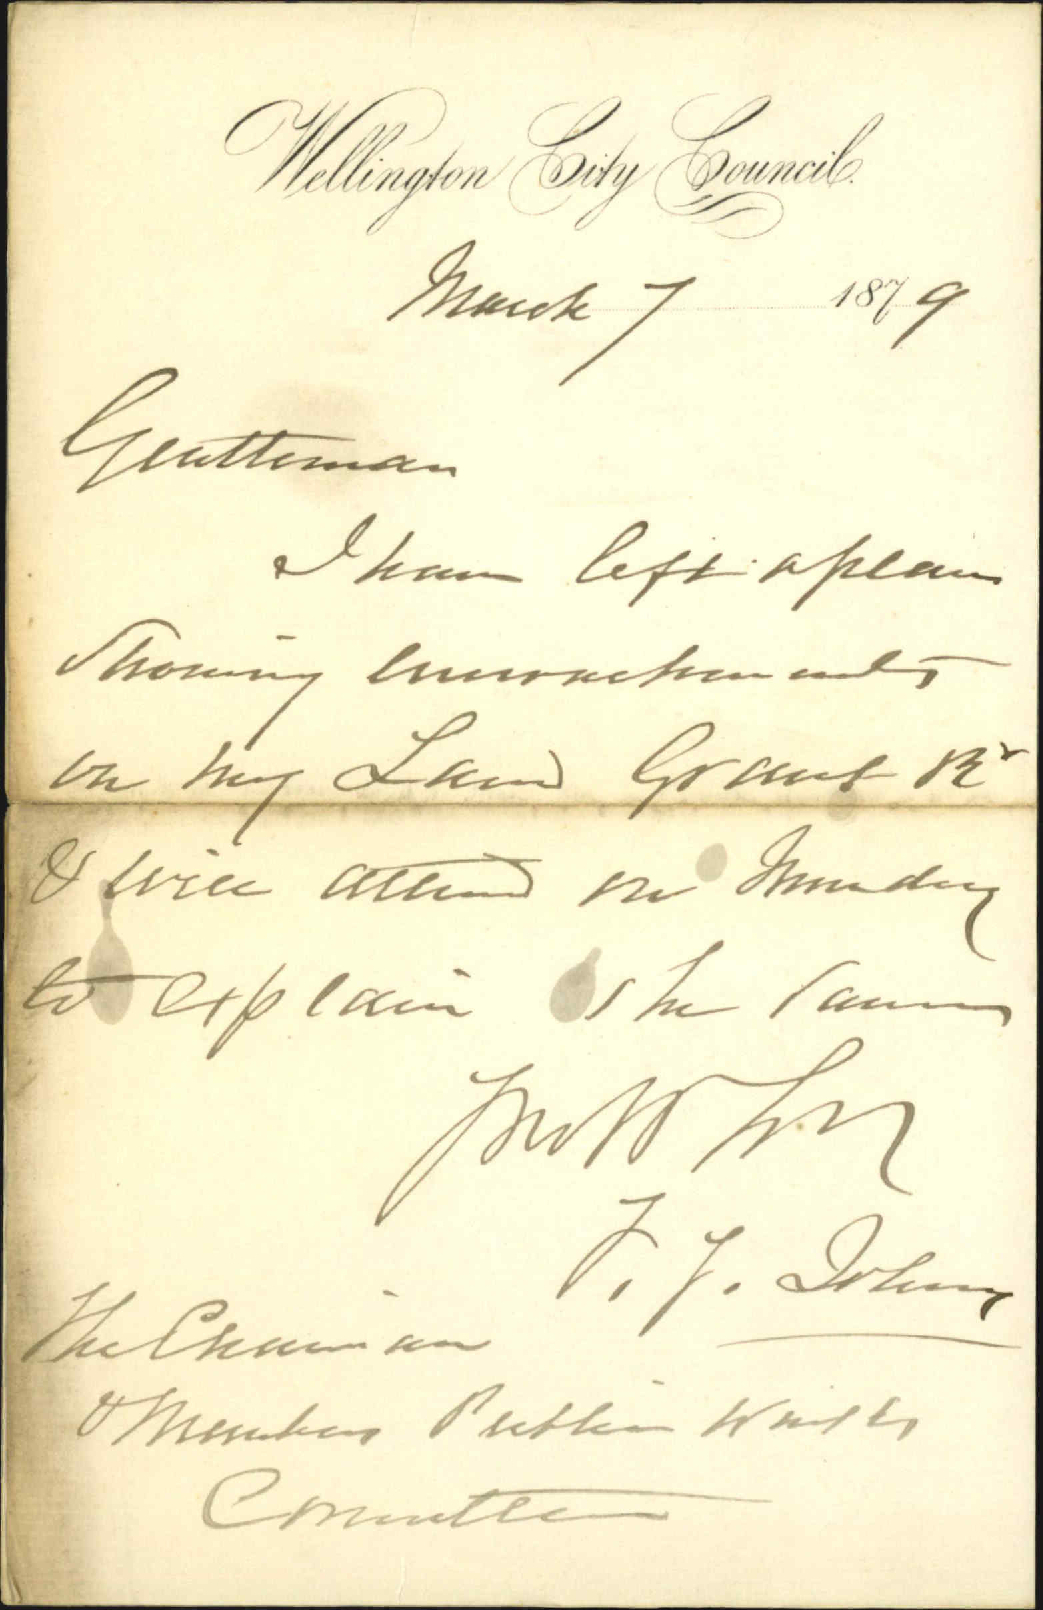 Wellington City Council.
March 7 1879
Gentleman
I have left a plan
Showing encroachments
on my Land Grant Rd
& will attend on Monday
to explain the same
The Chairman
& Members Public Works
Committee